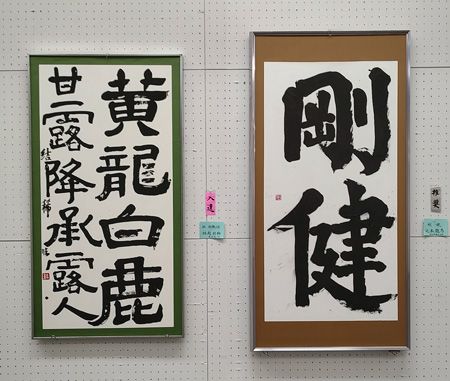 黄龍白鹿
甘露降承露人
入選
剛健
推奨